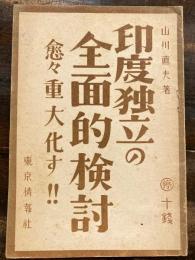 山川直夫著
印度独立の
全面的検討
愈々重大化す!!
十銭
東京情報社